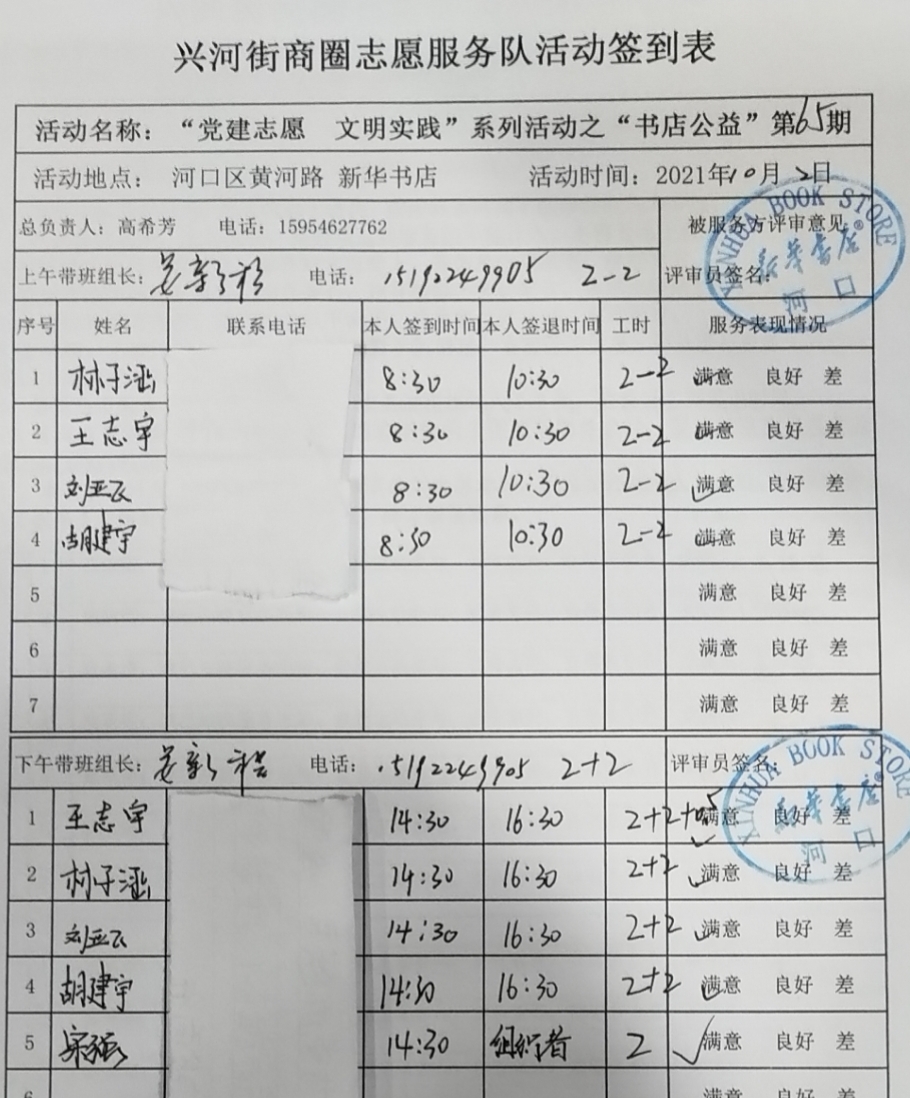 兴河街商圈志愿服务队活动签到表
活动名称：“党建志愿 文明实践”系列活动之“书店公益”第65期
活动地点： 河口区黄河路 新华书店 活动时间：2021年10月2日
总负责人：高希芳 电话：15954627762 被服务方评审意见
上午带班组长： 电话：15192249905 2-2 评审员签名：
序号 姓名 联系电话 本人签到时间 本人签退时间 工时 服务表现情况
1 林子涵 8:30 10:30 2-2 满意 良好 差
2 王志宇 8:30 10:30 2-2 满意 良好 差
3 刘亚飞 8:30 10:30 2-2 满意 良好 差
4 胡建宇 8:30 10:30 2-2 满意 良好 差
5 满意 良好 差
6 满意 良好 差
7 满意 良好 差
XINHUA BOOK STORE
新华书店®
河口
下午带班组长： 电话：15192249905 2+2 评审员签名：
1 王志宇 14:30 16:30 2+2+0.5 满意 良好 差
2 林子涵 14:30 16:30 2+2 满意 良好 差
3 刘亚飞 14:30 16:30 2+2 满意 良好 差
4 胡建宇 14:30 16:30 2+2 满意 良好 差
5 14:30 组织者 2 满意 良好 差
6 满意 良好 差
XINHUA BOOK STORE
新华书店®
河口